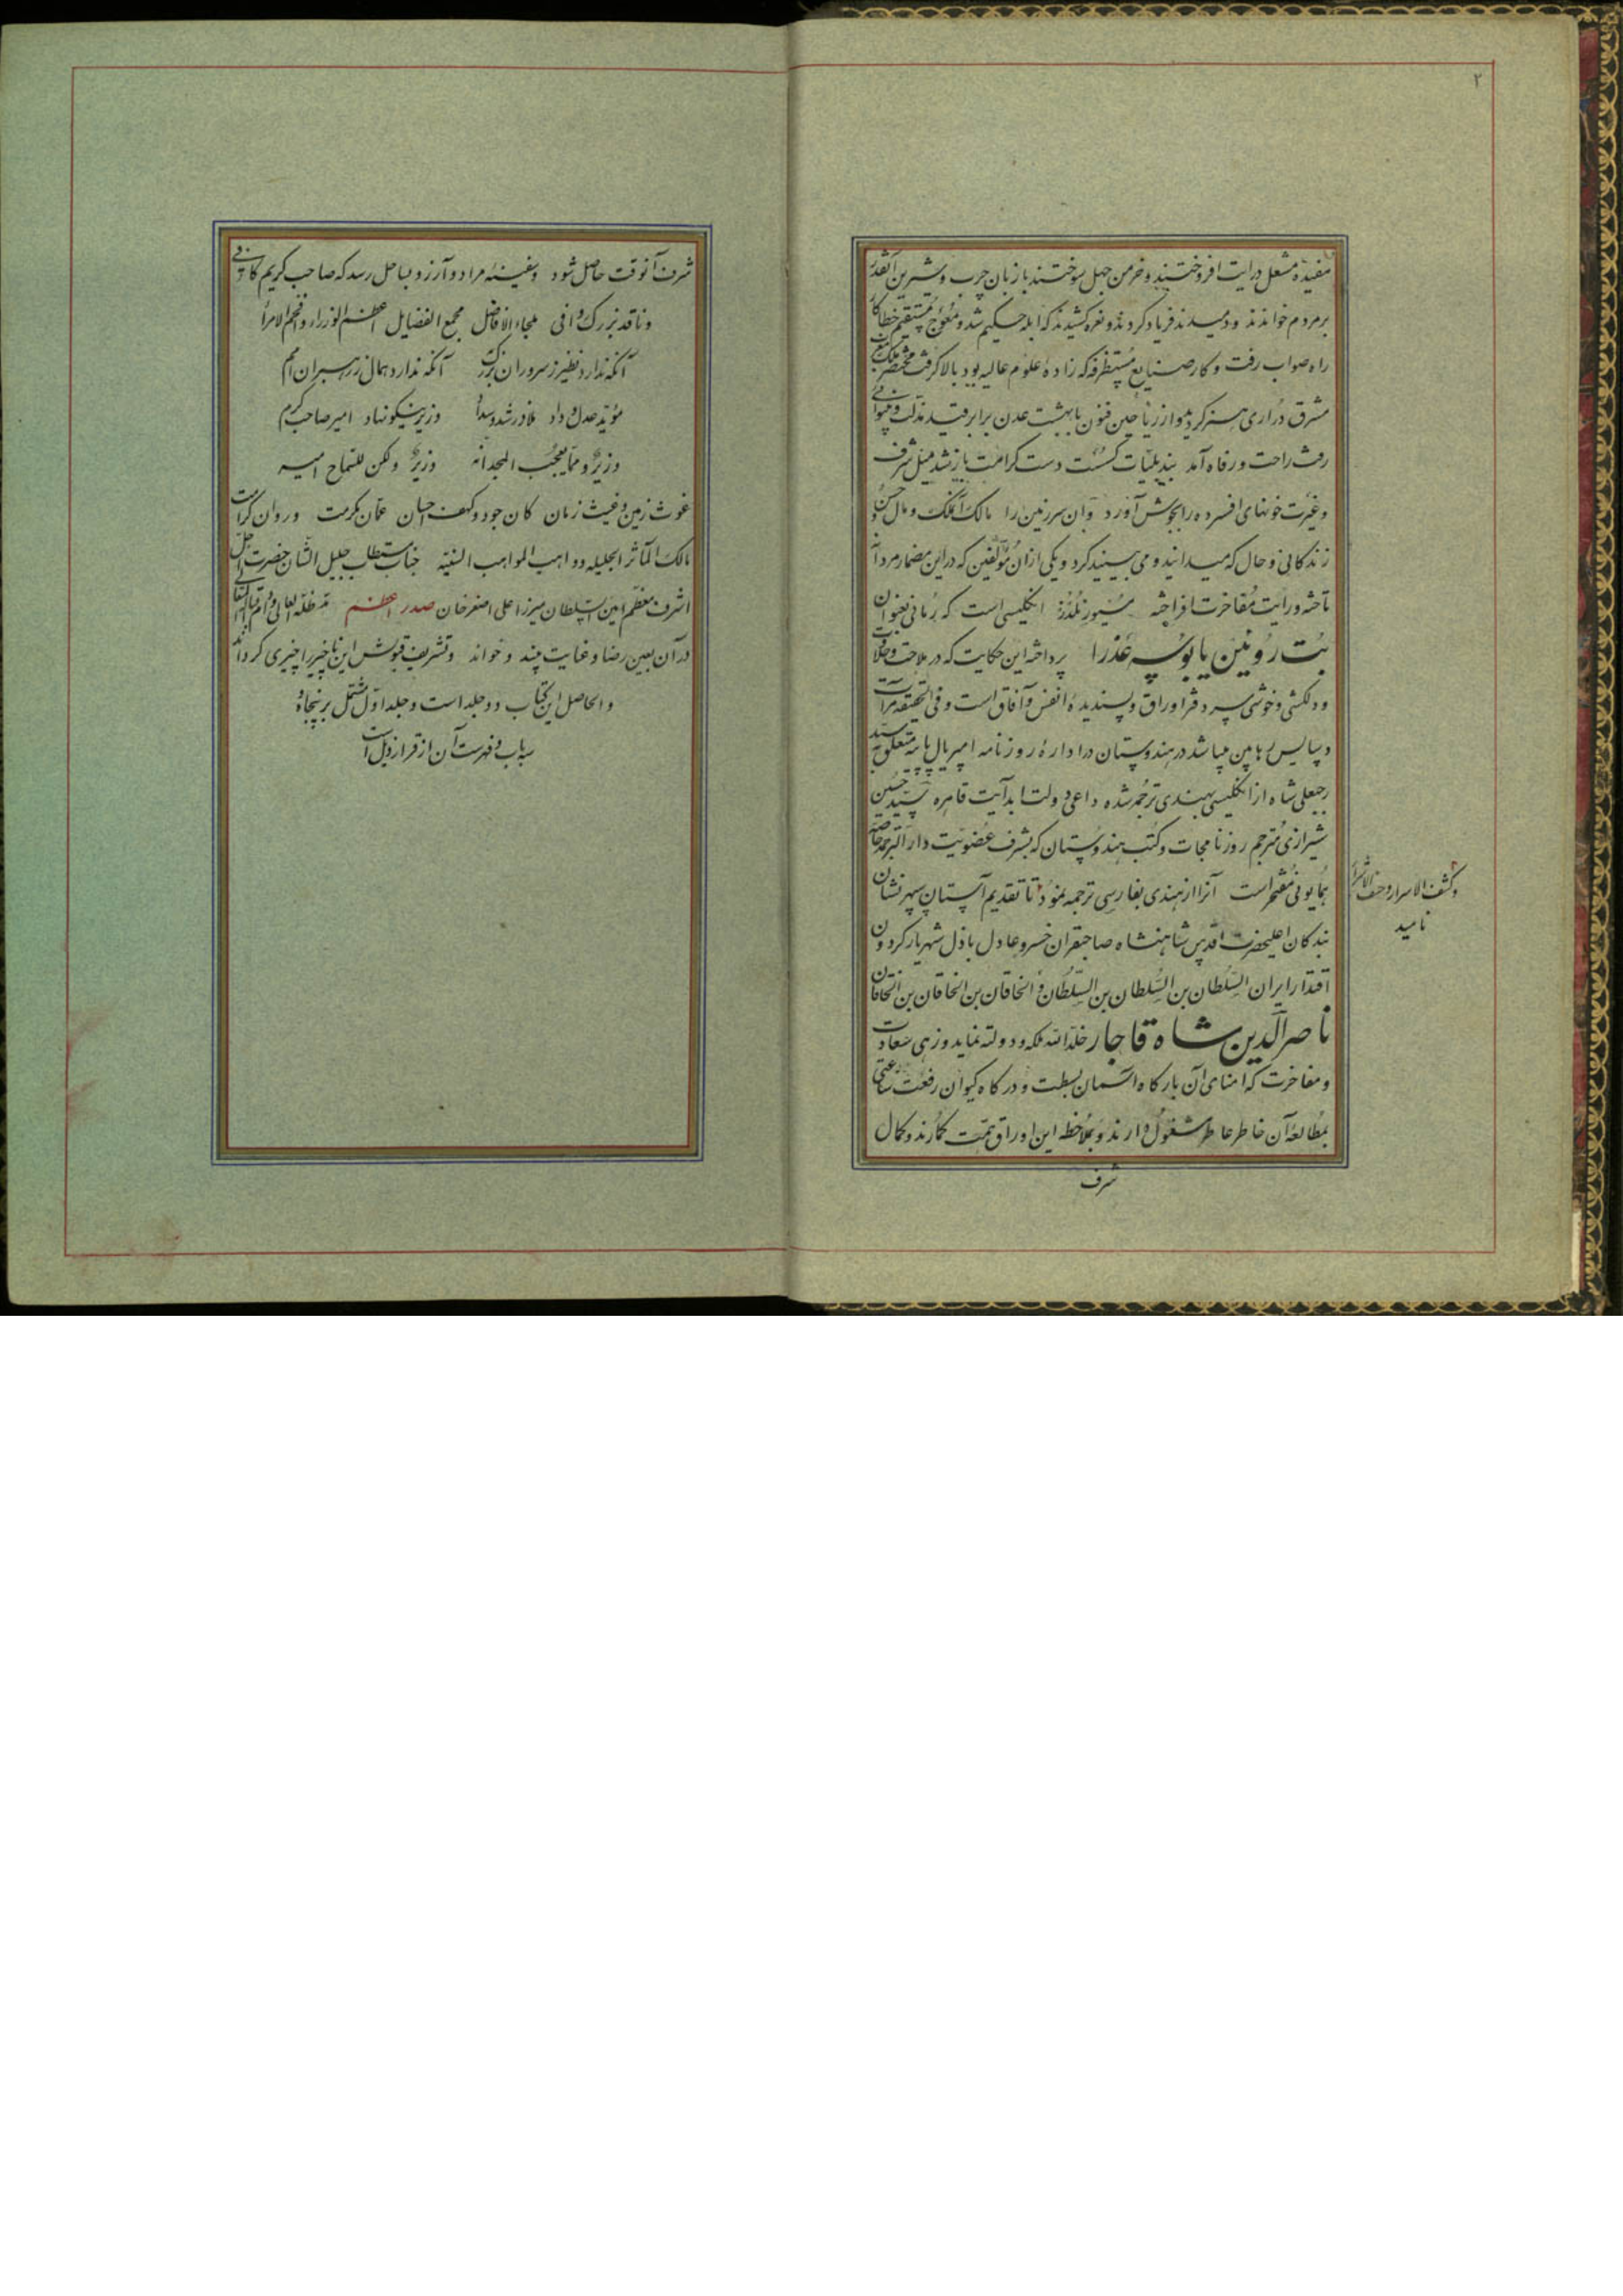 ۲
مفیده مشعل درایت افروختند و خرمن جهل سوختند با زبان چرب و شیرین آنقدر
بر مردم خواندند و دمیدند فریاد کردند و نعره کشیدند که ابله حکیم شد و معوج مستقیم خطاکار
راه صواب رفت و کار صنایع مستظرفه که زاده علوم عالیه بود بالا گرفت مختصر ملک مغرب
مشرق دراری هنر گردید و از ریاحین فنون با بهشت عدن برابر قید مذلت و بینوائی
رفت راحت و رفاه آمد بند بلیات گسست دست کرامت باز شد میل شرف
و غیرت خونهای افسرده را بجوش آورد و آن سرزمین را مالک الملک و مال حسن و
زندگانی و حال که میدانید و می بینید کرد و یکی از آن مؤلفین که در این مضمار مردانه
تاخته و رایت مفاخرت افراخته مسیو رنلدز انگلیسی است که رمانی بعنوان
بت روئین یا بوسه عذرا پرداخته این حکایت که در ملاحت و حلاوت
و دلکشی و خوشی سر دفتر اوراق و پسندیده انفس و آفاق است و فی الحقیقه مرآت
دسایس رهابین میباشد در هندوستان در اداره روزنامه امپریال پیپر متعلق به سید
رجبعلی شاه از انگلیسی بهندی ترجمه شده داعی دولت ابد آیت قاهره سید حسین
شیرازی مترجم روزنامجات و کتب هندوستان که بشرف عضویت دار الترجمه خاصه
همایونی مفتخر است آنرا از هندی بفارسی ترجمه نمود تا تقدیم آستان سپهر نشان
و کشف الاسرار و حتف الاشرار
نامید
بندگان اعلیحضرت اقدس شاهنشاه صاحبقران خسرو عادل باذل شهریار گردون
اقتدار ایران السلطان بن السلطان بن السلطان و الخاقان بن الخاقان بن الخاقان
ناصرالدین شاه قاجار خلد الله ملکه و دولته نماید و زهی سعادت
و مفاخرت که امنای آن بارگاه آسمان بسطت و درگاه کیوان رفعت ساعتی
بمطالعه آن خاطر عاطر مشغول دارند و بملاحظه این اوراق همت گمارند و کمال
شرف
شرف آنوقت حاصل شود و سفینه مراد و آرزو بساحل رسد که صاحب کریم کافی
و ناقد بزرگ وافی ملجاء الافاضل مجمع الفضایل اعظم الوزراء و افخم الامراء
آنکه ندارد نظیر ز سروران بزرگ آنکه ندارد همال ز رهبران امم
مؤید عدل و داد ملاذ رشد و سداد وزیر نیکو نهاد امیر صاحب کرم
وزیر و مما یعجب المجد انه وزیر ولکن للسماح امیر
غوث زمین و غیث زمان کان جود و کهف احسان عمان مکرمت و روان کرامت
مالک المآثر الجلیله و واهب المواهب السنیه جناب مستطاب جلیل الشان حضرت اجل
اشرف معظم امین السلطان میرزا علی اصغر خان صدر اعظم مد ظله العالی و دام اقباله المتعالی
در آن بعین رضا و عنایت بیند و خواند و تشریف قبولش این ناچیز را چیزی گرداند
و الحاصل این کتاب دو جلد است و جلد اول مشتمل بر پنجاه و
سه باب و فهرست آن از قرار ذیل است